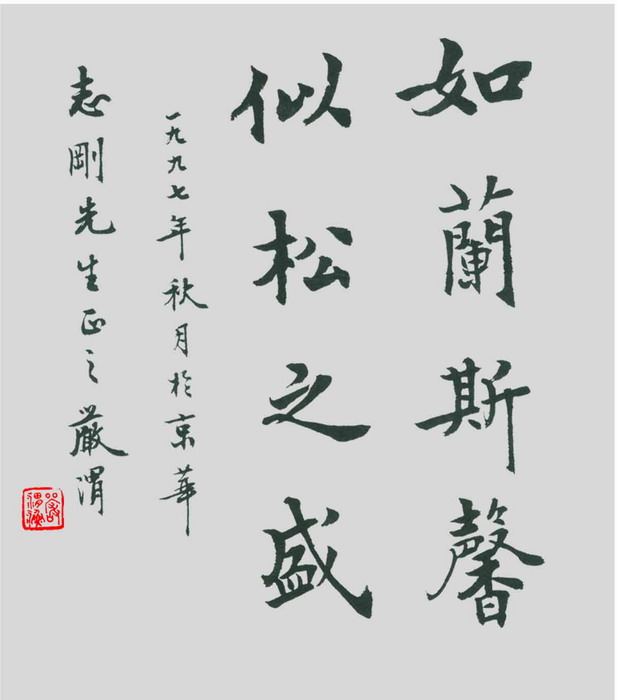 如蘭斯馨
似松之盛
一九九七年秋月於京華
志剛先生正之 嚴渭